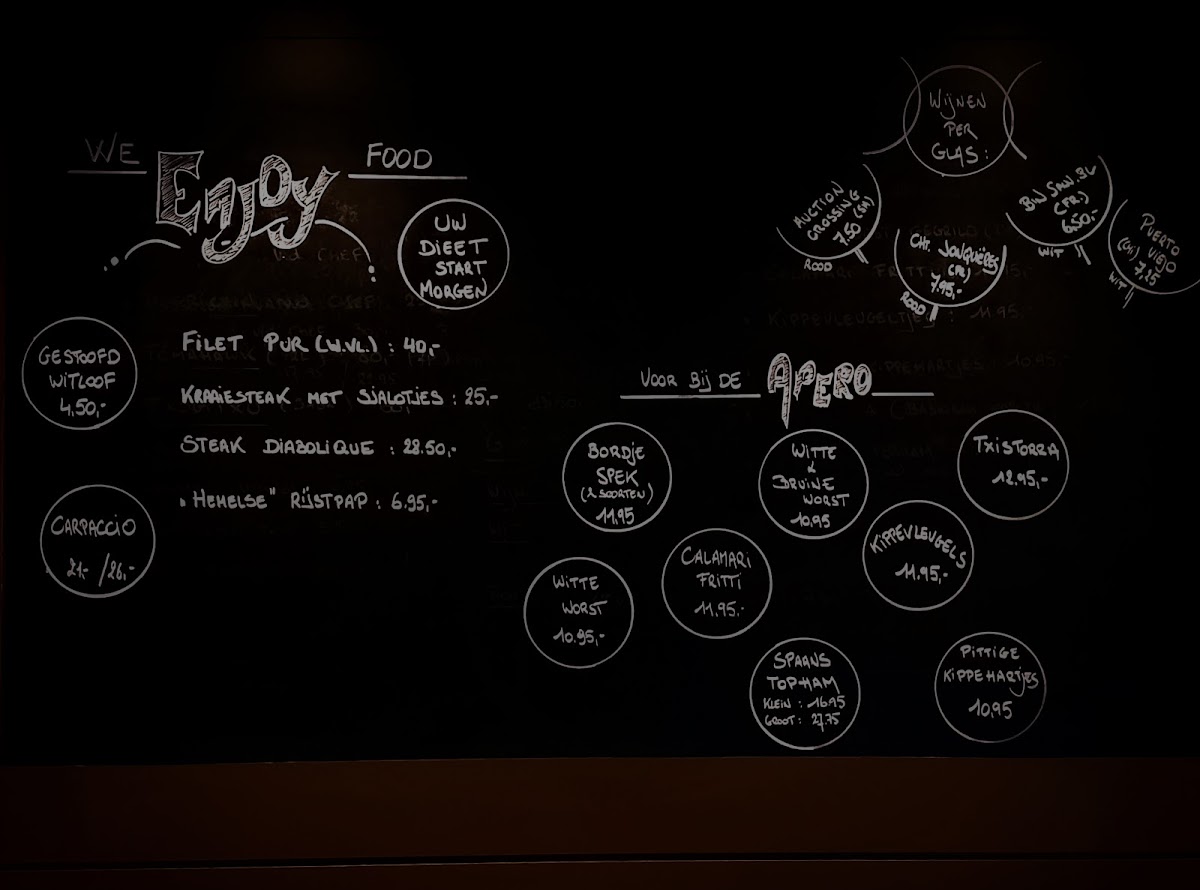 WE Enjoy FOOD
UW
DIEET
START
MORGEN
GESTOOFD
WITLOOF
4,50,-
CARPACCIO
21,- /26,-
FILET PUR (W.VL) : 40,-
KRAAIESTEAK MET SJALOTJES : 25,-
STEAK DIABOLIQUE : 28.50,-
"HEMELSE" RIJSTPAP : 6.95,-
WIJNEN
PER
GLAS :
AUCTION
CROSSING
7.50
ROOD
CHT. JONQUIÈRES
(FR)
7.95,-
ROOD
(FR.)
6.50,-
WIT
PUERTO
(CHI) VIEJO
7.25
WIT
VOOR BIJ DE APERO
BORDJE
SPEK
(2 SOORTEN)
11,95
WITTE
&
BRUINE
WORST
10.95
TXISTORRA
12.95,-
KIPPEVLEUGELS
11.95,-
CALAMARI
FRITTI
11,95,-
WITTE
WORST
10.95,-
SPAANS
TOPHAM
KLEIN : 16.95
GROOT : 27.75
PITTIGE
KIPPEHARTJES
10,95